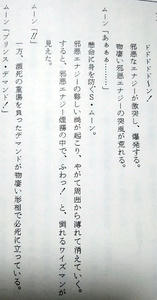 ドドドドドーン！
邪悪なエナジーが激突し、爆発する。
物凄い邪悪エナジーの突風が荒れる。
ムーン「あぁぁぁ……」
懸命に身を防ぐS・ムーン。
邪悪エナジーの毒々しい渦が起こり、やがて周囲から薄れて消えていく。
すると、邪悪エナジー煙霧の中で、ふわっ！　と、倒れるワイズマンが
見えた。
ムーン「!!」
一方、瀕死の重傷を負ったデマンドが物凄い形相で必死に立っている。
ムーン「プリンス・デマンド！」